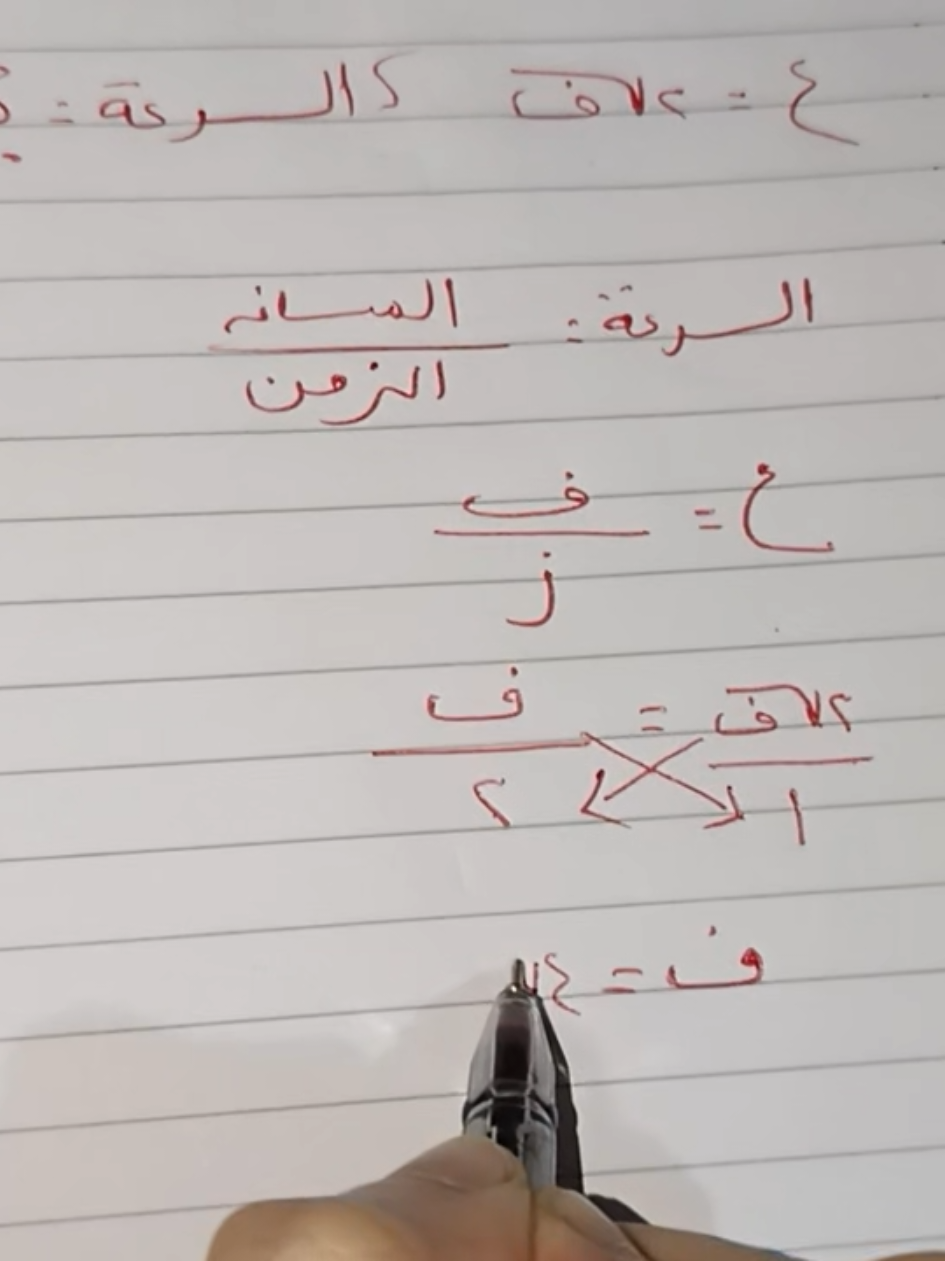 ع = ٢√ف ، السرعة =
السرعة = المسافة / الزمن
ع = ف / ز
٢√ف / ١ = ف / ٢
ف = ٤√